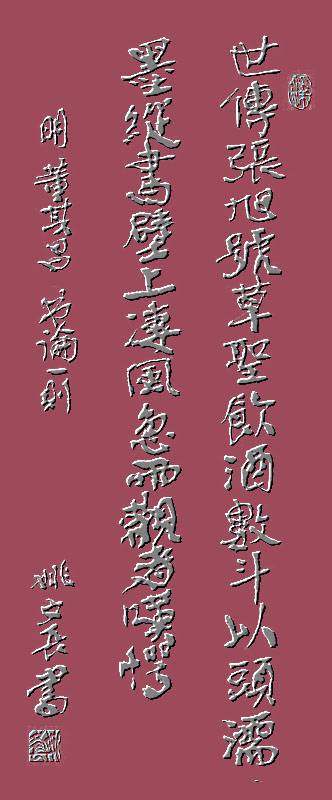 世傳張旭號草聖飲酒數斗以頭濡
墨縱書壁上凄風急雨觀者嘆愕
明董其昌 書論一則
姚長書